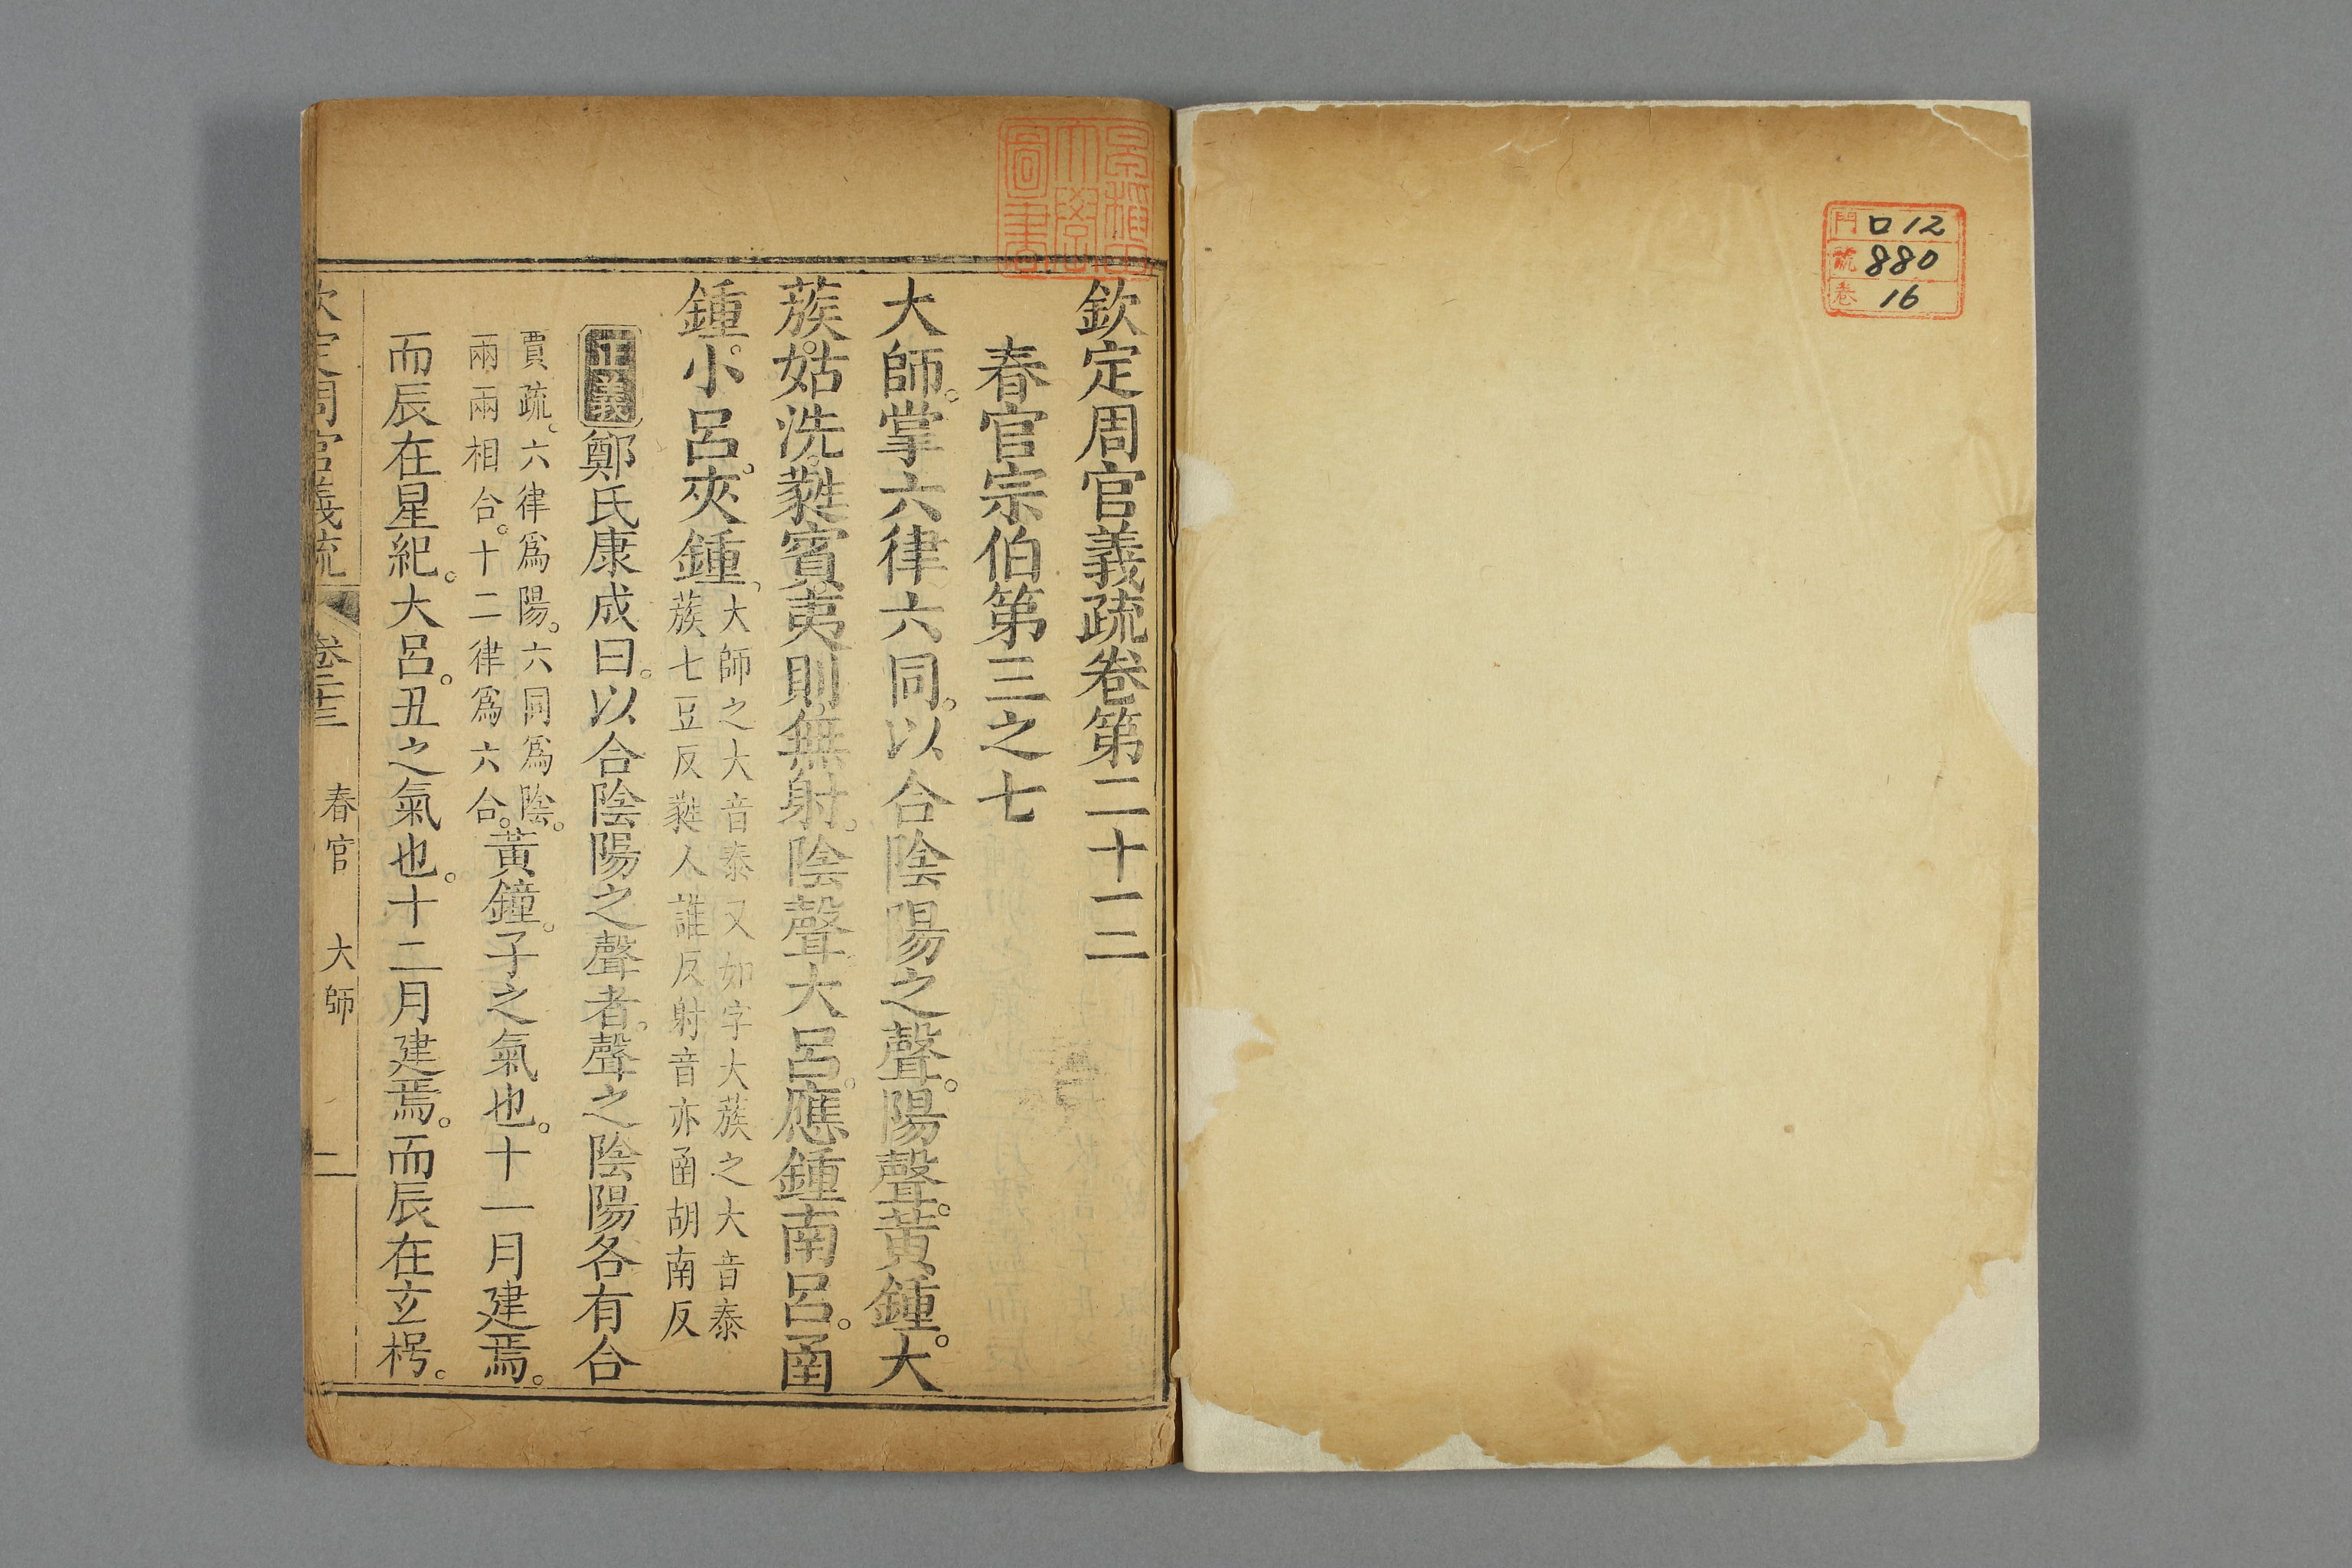 門 ロ12
號 880
卷 16
早稲田大學圖書
欽定周官義疏卷第二十三
春官宗伯第三之七
大師。掌六律六同。以合陰陽之聲。陽聲。黃鍾。大
蔟。姑洗。蕤賓。夷則。無射。陰聲。大呂。應鍾。南呂。函
鍾。小呂。夾鍾。
大師之大音泰又如字大蔟之大音泰
蔟七豆反蕤人誰反射音亦函胡南反
正義鄭氏康成曰。以合陰陽之聲者。聲之陰陽各有合
賈疏。六律爲陽。六同爲陰。
兩兩相合。十二律爲六合。
黃鐘。子之氣也。十一月建焉。
而辰在星紀。大呂。丑之氣也。十二月建焉。而辰在玄枵。
欽定周官義疏 卷二十三 春官 大師 一